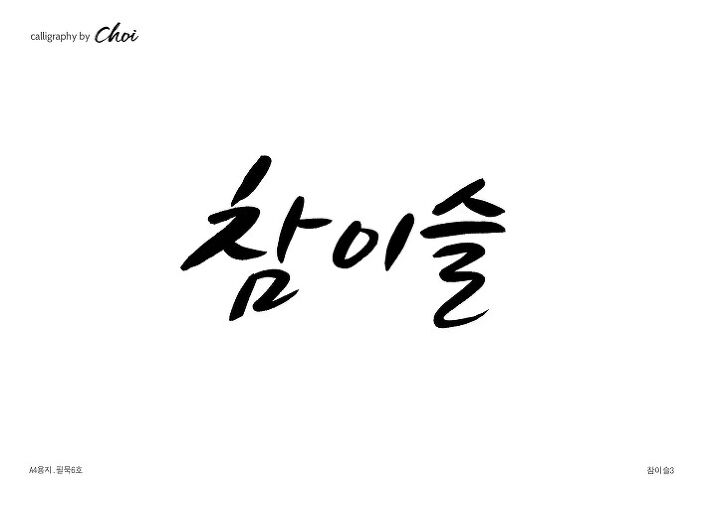 calligraphy by Choi
참이슬
A4용지.필묵6호
참이슬3